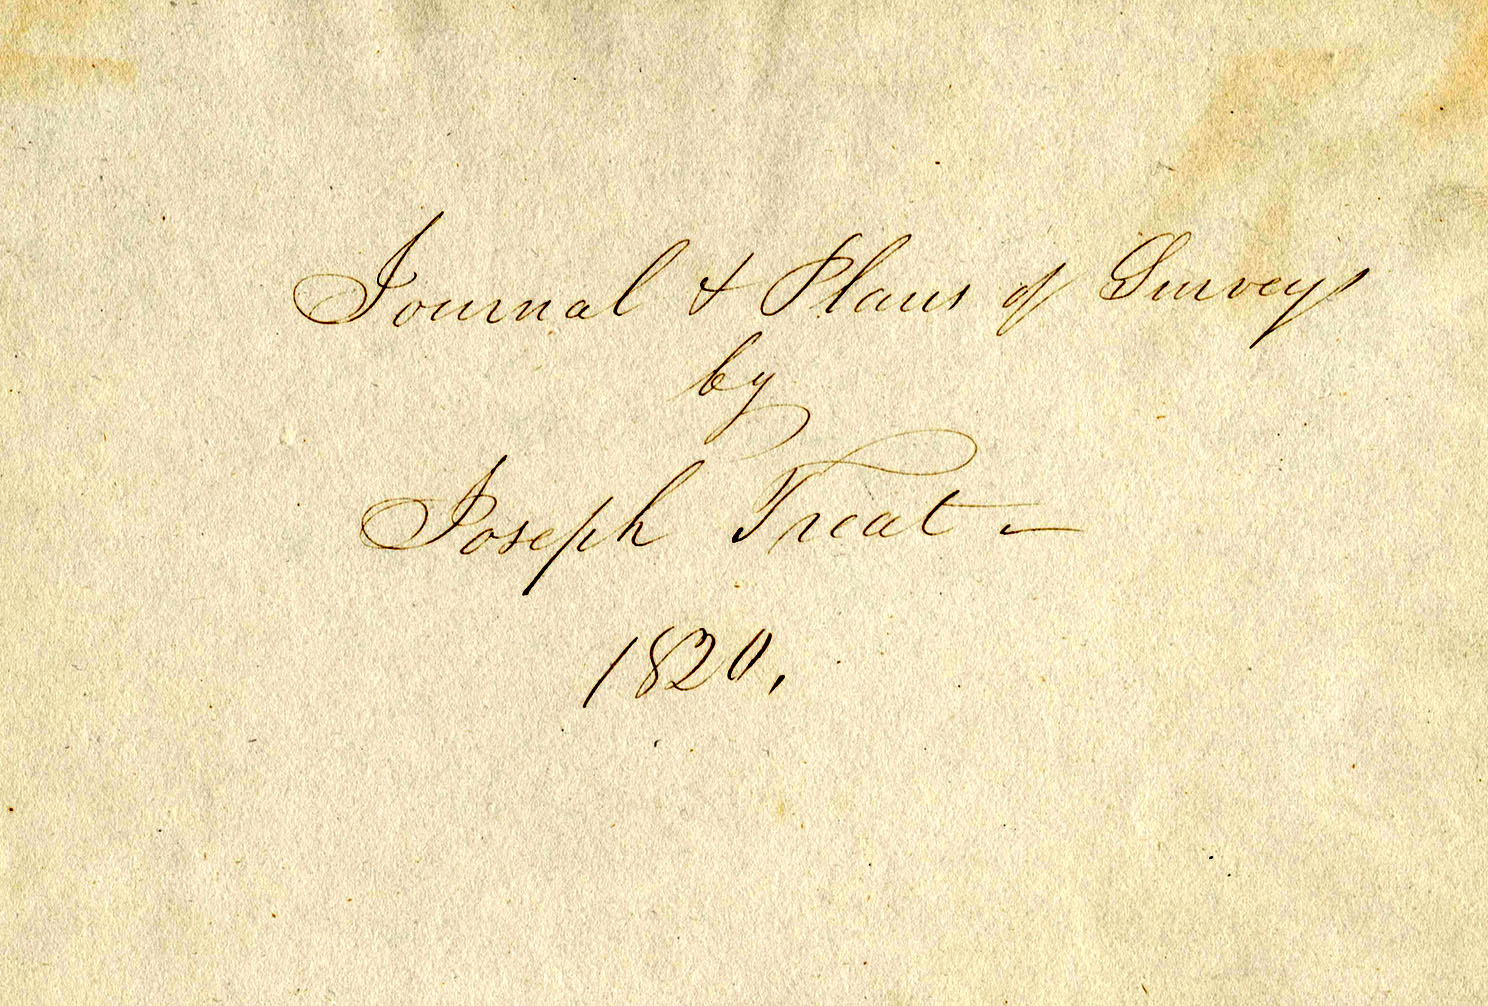 Journal & Plans of Surveys
by
Joseph Treat –
1820.